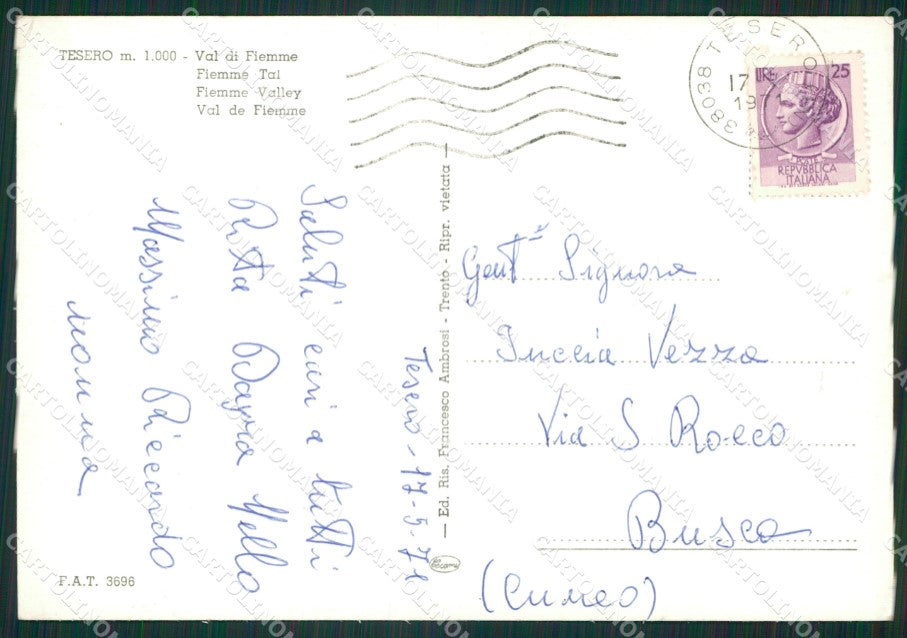 TESERO m. 1.000 - Val di Fiemme
Fiemme Tal
Fiemme Valley
Val de Fiemme
38038 TESERO
17
LIRE 25
POSTE
REPVBBLICA
ITALIANA
Saluti cari a tutti
Rita
Massimo Riccardo
nonna
Tesero - 17-5-71
— Ed. Ris. Francesco Ambrosi - Trento - Ripr. vietata —
Gent.ᵉ Signora
Luccia Vezza
Via S Rocco
Busca
(Cuneo)
F.A.T. 3696
CARTOLINOMANIA